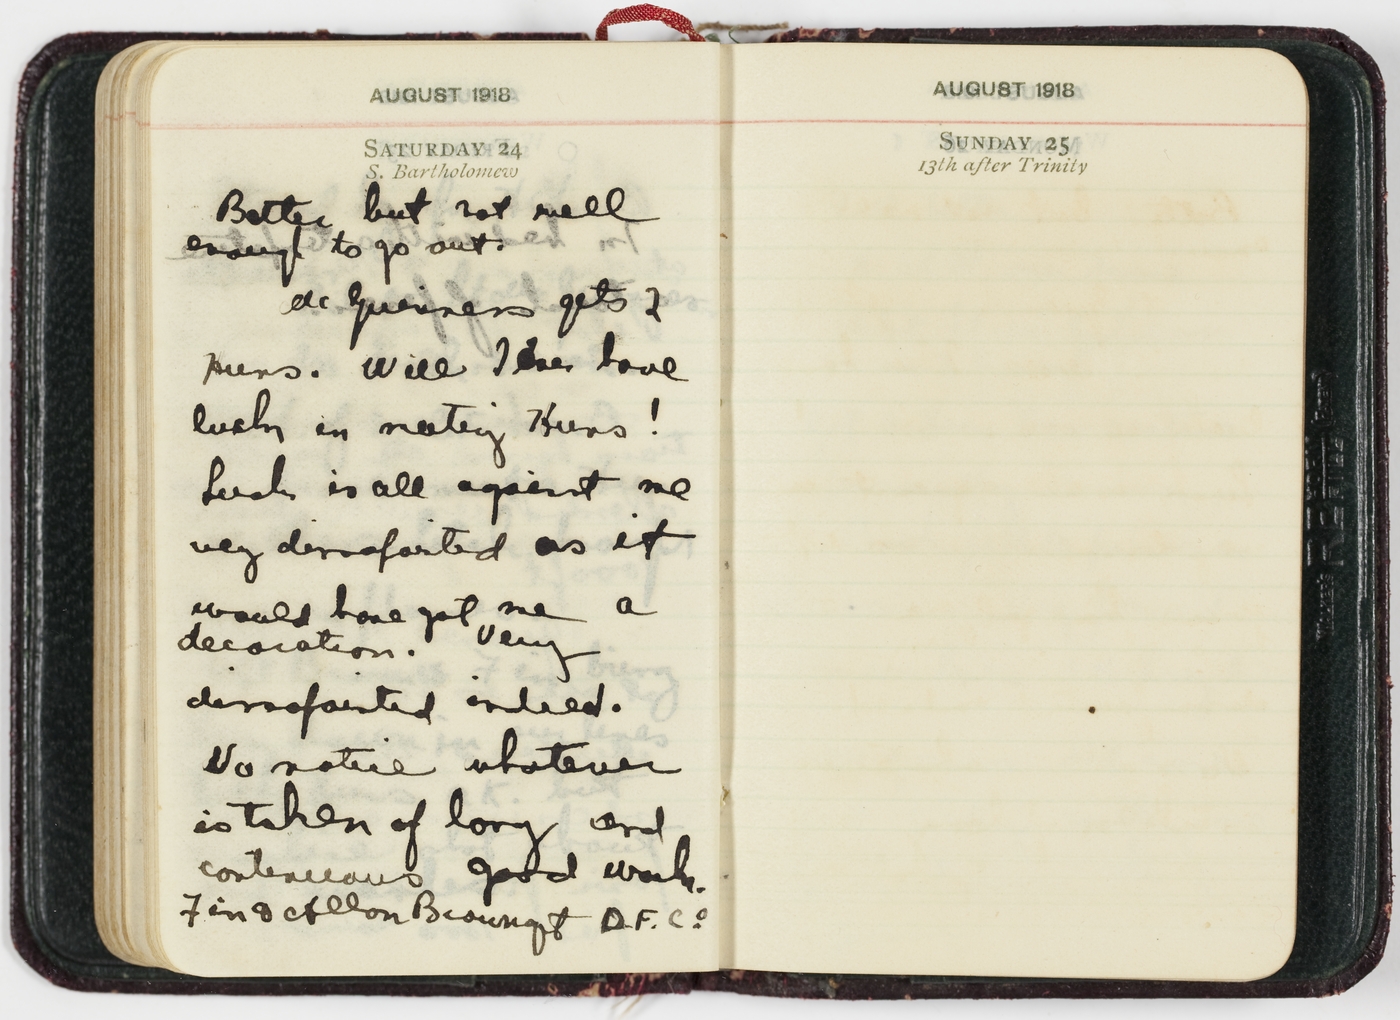 AUGUST 1918
SATURDAY 24
S. Bartholomew
Better but not well
enough to go out.
de Guesners gets 2
Huns. Will I ever have
luck in meeting Huns!
Luck is all against me
very dissapointed as it
would have got me a
decoration. Very
dissapointed indeed.
No notice whatever
is taken of long and
continuous good work.
Find Allon Brown got D.F.C.
AUGUST 1918
SUNDAY 25
13th after Trinity